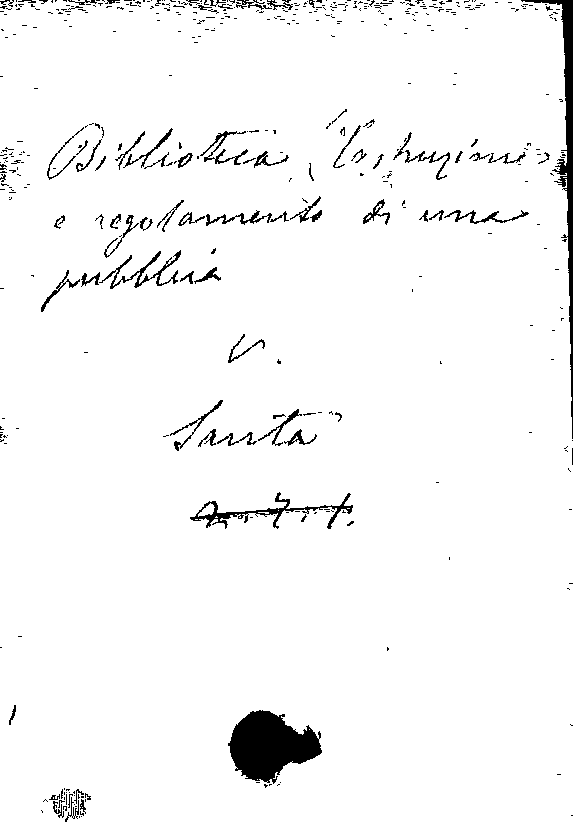 Biblioteca (Costruzione
e regolamento di una
pubblica
V.
Santa